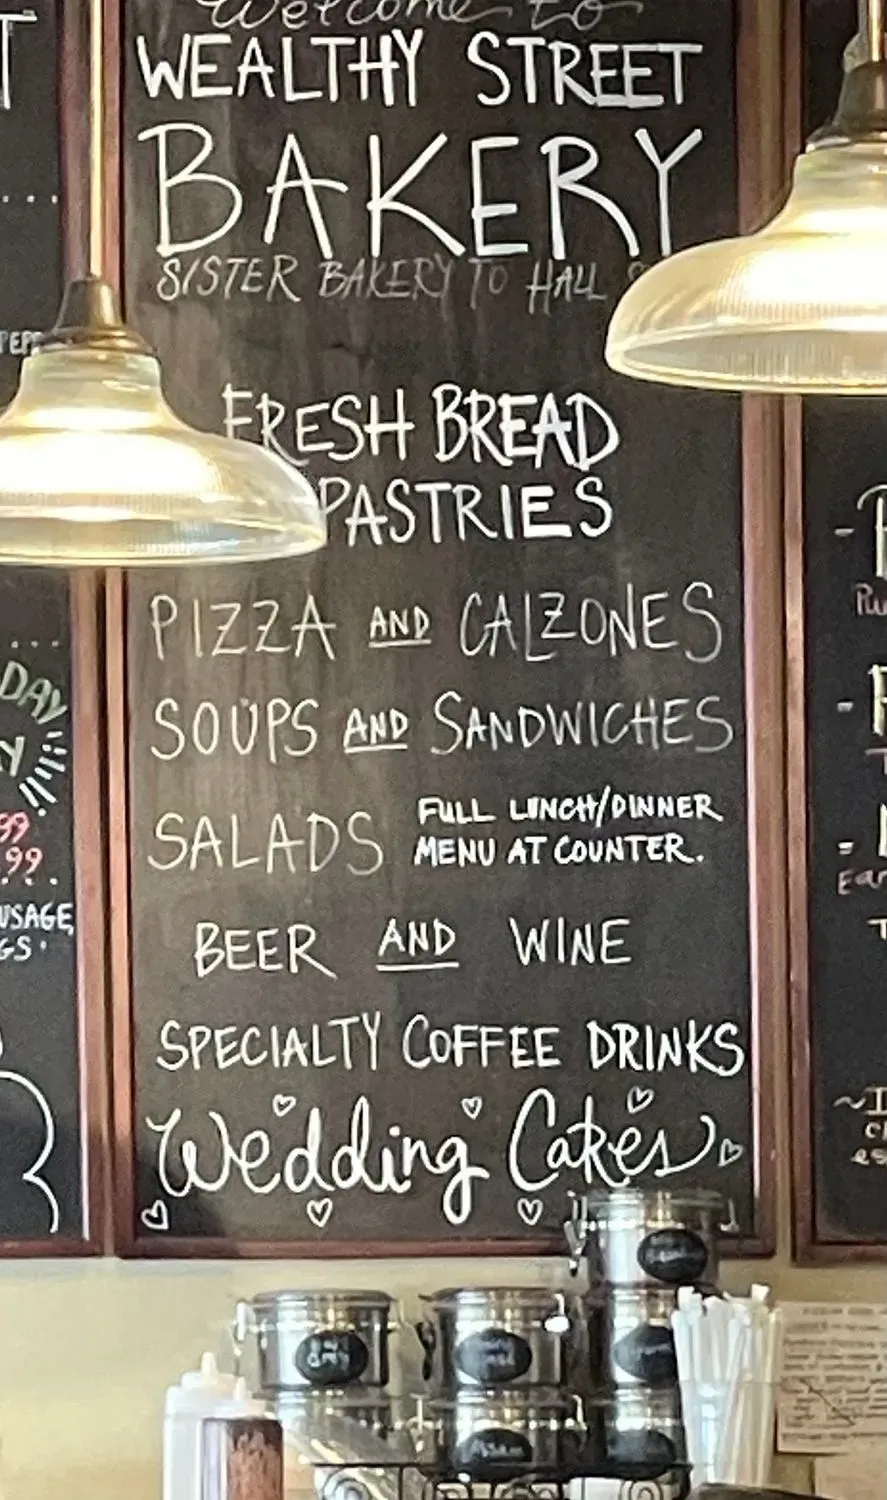 Welcome to
WEALTHY STREET
BAKERY
SISTER BAKERY TO HALL
FRESH BREAD
PASTRIES
PIZZA AND CALZONES
SOUPS AND SANDWICHES
SALADS
FULL LUNCH/DINNER
MENU AT COUNTER.
BEER AND WINE
SPECIALTY COFFEE DRINKS
Wedding Cakes
DAY
99
.99
Assam